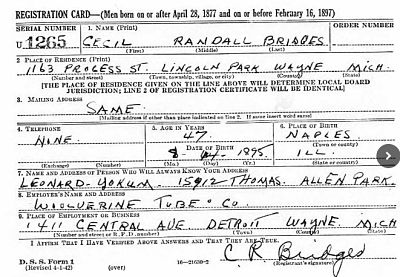 REGISTRATION CARD—(Men born on or after April 28, 1877 and on or before February 16, 1897)
SERIAL NUMBER 1. NAME (Print) ORDER NUMBER
U 1265 CECIL RANDALL BRIDGES
(First) (Middle) (Last)
2. PLACE OF RESIDENCE (Print)
1163 PROGESS ST. LINCOLN PARK WAYNE MICH.
(Number and street) (Town, township, village, or city) (County) (State)
[THE PLACE OF RESIDENCE GIVEN ON THE LINE ABOVE WILL DETERMINE LOCAL BOARD
JURISDICTION; LINE 2 OF REGISTRATION CERTIFICATE WILL BE IDENTICAL]
3. MAILING ADDRESS
SAME.
[Mailing address if other than place indicated on line 2. If same insert word same]
4. TELEPHONE 5. AGE IN YEARS 6. PLACE OF BIRTH
NONE. 47 NAPLES
DATE OF BIRTH (Town or county)
8 1895 ILL.
(Exchange) (Number) (Mo.) (Day) (Yr.) (State or country)
7. NAME AND ADDRESS OF PERSON WHO WILL ALWAYS KNOW YOUR ADDRESS
LEONARD YOKUM. 15912 THOMAS. ALLEN PARK.
8. EMPLOYER'S NAME AND ADDRESS
WOOLVERINE TUBE CO
9. PLACE OF EMPLOYMENT OR BUSINESS
1411 CENTRAL AVE DETROIT WAYNE MICH
(Number and street or R. F. D. number) (Town) (County) (State)
I AFFIRM THAT I HAVE VERIFIED ABOVE ANSWERS AND THAT THEY ARE TRUE.
D. S. S. Form 1
(Revised 4-1-42) (over) 16—21630-2 C R Bridges
(Registrant's signature)